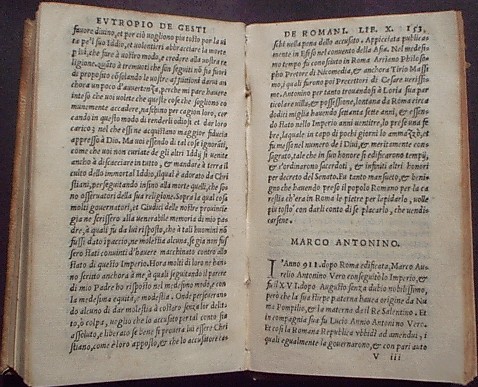 EVTROPIO DE GESTI
fauore diuino, et per ciò uogliono piu tosto per la ui
ta pe'l suo Iddio, et uolentieri abbracciare la morte
piu, che fare à uostro modo, e credere alla nostra re
ligione. quāto à tremuoti che son seguiti nõ fia fuori
di proposito cõsolando le uostre afflittioni darui an-
chora un poco d'auuertenza, perche mi pare hauere
inteso che uoi uolete che queste cose che sogliono co
munemente accadere, naschino per cagion loro, cer-
cando in questo modo di renderli odiosi, et dar loro
carico: nel che essi ne acquistano maggior fiducia
appresso à Dio. Ma uoi essendo di tal cose ignorāti,
come che uoi non curiate de gli altri Iddij ui uenite
anchora à discacciare in tutto, & mandare à terra il
culto dello immortal Iddio, ilqual è adorato da Chri
stiani, perseguitando insino alla morte quelli, che so
no osseruatori della sua religione. Sopra la qual cosa
molti gouernatori, et Giudici delle nostre prouincie
gia ne scrissero alla uenerabile memoria di mio pa-
dre, à quali fu da lui risposto, che à tali huomini nõ
fussi dato īpaccio, ne molestia alcuna, se gia non fus
sero stati conuinti d'hauere machinato contro allo
stato di questo Imperio. Hora molti di loro ne hano
no scritto anchora à me à quali seguitando il parere
di mio Padre ho risposto nel medesimo modo, e con
la medesima equità, e modestia. Onde perseuerando
do alcuno di dar molestia à costoro senza lor delit-
to, ò colpa, uoglio che lo accusato per tal conto sia
assoluto, e liberato se bene si prouerà lui essere Chri
stiano, come è loro apposto, & che lo accusatore ca-
DE ROMANI. LIB. X. 153.
schi nella pena dello accusato. Appiccata publicamē
te in Efesо nel conuento della Asia. Nel medesi-
mo tempo fu conosciuto in Roma Arriano Philoso-
pho Pretore di Nicomedia, & anchora Tirio Massi
mo, i quali furono poi Precettori di Cesare uerissi-
mo. Antonino per tanto trouandosi à Loria sua par
ticolare uilla, & possessione, lontana da Roma circa
dodici miglia hauendo settanta sette anni, & essen-
do stato nello Imperio anni uentitre, lo prese una fe
bre, laquale in capo di pochi giorni lo ammazzò, et
fu messo nel numero de i Diui, & meritamente con-
sagrato, tale che in suo honore si edificarono tempij,
& s'ordinarono sacerdoti, & infiniti altri honori
per decreto del Senato. Fu tanto mansueto, & beni-
gno che hauendo preso il popolo Romano per la ca-
restia ch'era in Roma le pietre per lapidarlo, uolle
piu tosto con darli conto di se placarlo, che uendi-
carsene.
MARCO ANTONINO.
L'Anno 911. dopo Roma edificata, Marco Au-
relio Antonino Vero conseguitò lo Imperio, &
fu il XVI. dopo Augusto senza dubio nobilissimo,
però che la sua stirpe paterna hauea origine da Nu
ma Pompilio, & la materna de il Re Salentino. Et
in compagnia sua fu Lucio Annio Antonino Vero.
Et cosi la Romana Republica ubbidì ad amendui, i
quali egualmente la gouernarono, & con pari auto
V iii